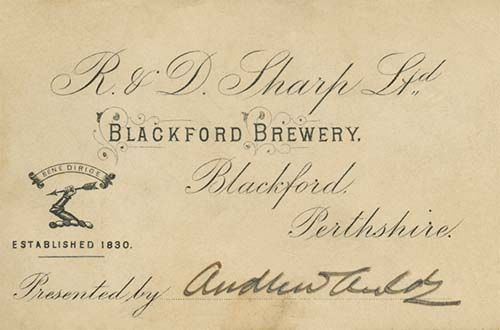 R. & D. Sharp Ltd,,
BLACKFORD BREWERY,
Blackford,
Perthshire.
BENE DIRIGE
ESTABLISHED 1830.
Presented by Andrew